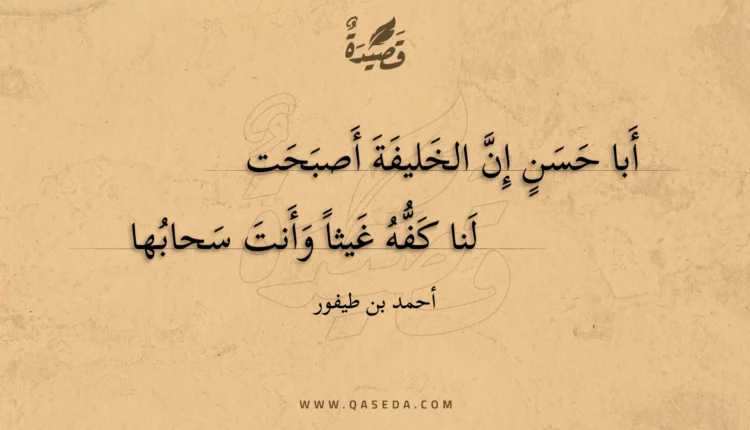 قَصِيدَةٌ
أَبا حَسَنٍ إِنَّ الخَليفَةَ أَصبَحَت
لَنا كَفُّهُ غَيثاً وَأَنتَ سَحابُها
أحمد بن طيفور
WWW.QASEDA.COM